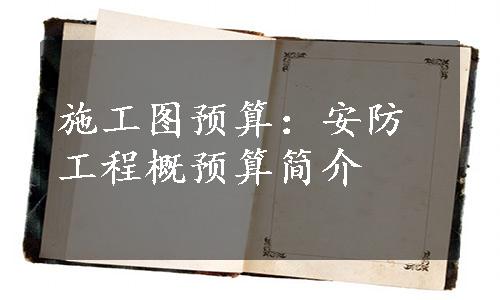 施工图预算：安防
工程概预算简介